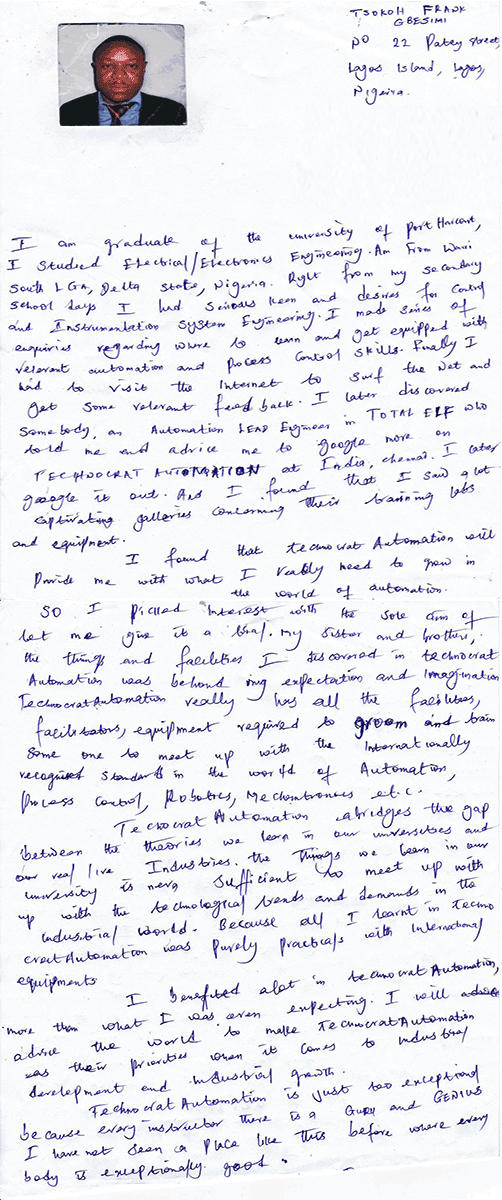 TSOKOH FRANK
GBESIMI
NO 22 Patey street,
Lagos Island, Lagos,
Nigeria.
I am graduate of the university of Port Harcourt,
I studied Electrical/Electronics Engineering. Am From Warri
South LGA, Delta State, Nigeria. Right from my secondary
school days I had serious keen and desires for control
and Instrumentation System Engineering. I made series of
enquiries regarding where to learn and get equipped with
relevant automation and Process control skills. Finally I
had to visit the Internet to surf the Net and
get some relevant feed back. I later discovered
Somebody, an Automation LEAD Engineer in TOTAL ELF who
told me and advice me to google more on
TECHNOCRAT AUTOMATION at India, chennai. I later
google it out. And I found that I saw a lot
captivating galleries concerning their training labs
and equipment.
I found that technocrat Automation will
Provide me with what I really need to grow in
the world of automation.
SO I picked interest with the sole aim of
let me give it a trial. My sister and brothers,
the things and facilities I discovered in technocrat
Automation was behond my expectation and Imagination
Technocrat Automation really has all the facilities,
facilitators, equipment required to groom and train
Some one to meet up with the Internationally
recognised standards in the world of Automation,
Process Control, Robotics, Mechantronics e.t.c.
Tecnocrat Automation abridges the gap
between the theories we learn in our universities and
our real/live Industries. The things we learn in our
university is never sufficient to meet up with
up with the technological trends and demands in the
Industrial world. Because all I learnt in Techno
crat Automation was purely practicals with International
equipments
I benefited alot in technocrat Automation,
more than what I was even expecting. I will
advice the world to make Technocrat Automation
as their priorities when it comes to Industrial
development and industrial growth.
Technocrat Automation is Just too exceptional
because every instructor there is a GURU and GENIUS
I have not seen a Place like this before where every
body is exceptionally good.